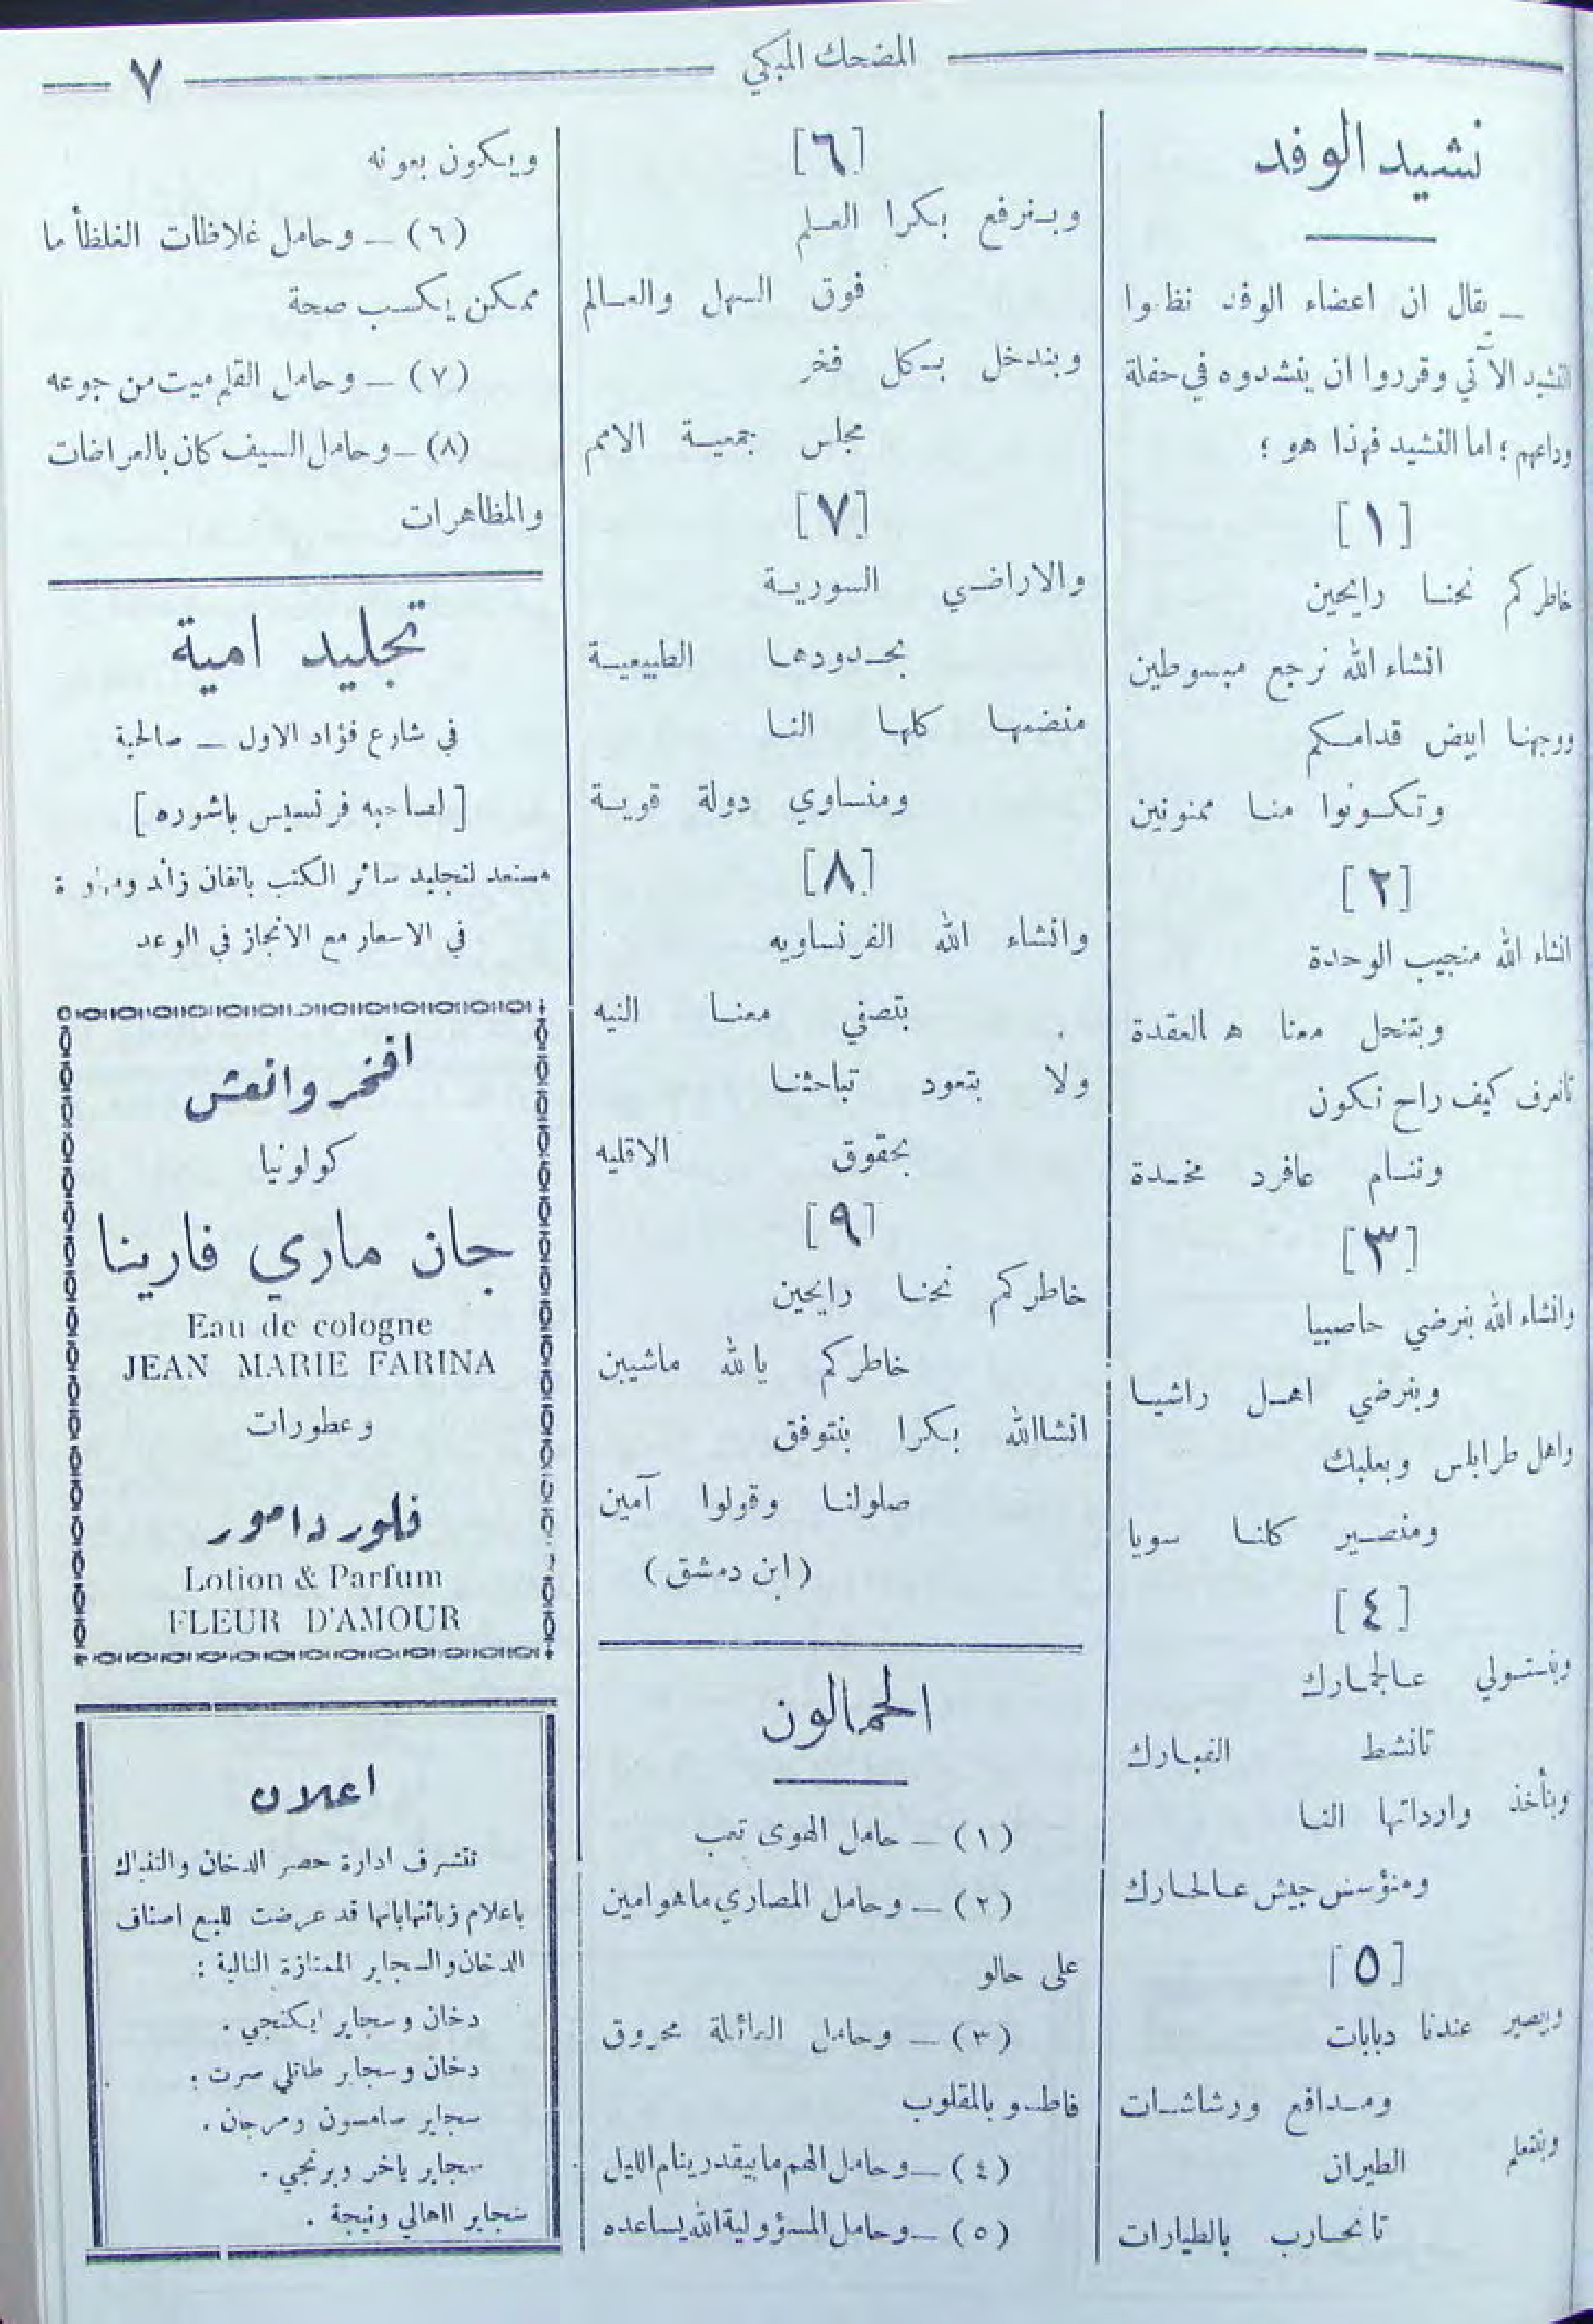 المضحك المبكي
٧
نشيد الوفد
ــ يقال ان اعضاء الوفد نظموا
النشيد الآتي وقرروا ان ينشدوه في حفلة
وداعهم ؛ اما النشيد فهذا هو ؛
[١]
خاطركم نحنا رايحين
انشاء الله نرجع مبسوطين
ووجهنا ابيض قدامكم
وتكونوا منا ممنونين
[٢]
انشاء الله منجيب الوحدة
وبتنحل معنا هالعقدة
تانعرف كيف راح نكون
وننام عافرد مخدة
[٣]
وانشاء الله بنرضي حاصبيا
وبنرضي اهل راشيا
واهل طرابلس وبعلبك
ومنصير كلنا سويا
[٤]
وبنستولي عالجمارك
تانشط الفبارك
وبنأخذ وارداتها النا
ومنؤسس جيش عالحارك
[٥]
وبصير عندنا دبابات
ومدافع ورشاشات
وبنتعلم الطيران
تانحارب بالطيارات
[٦]
وبنرفع بكرا العلم
فوق السهل والعالم
وبندخل بكل فخر
مجلس جمعية الامم
[٧]
والاراضي السورية
بحدودها الطبيعية
منضمها كلها النا
ومنساوي دولة قوية
[٨]
وانشاء الله الفرنساويه
بتصفي معنا النيه
ولا بتعود تباحثنا
بحقوق الاقليه
[٩]
خاطركم نحنا رايحين
خاطركم يالله ماشيين
انشاالله بكرا بنتوفق
صلولنا وقولوا آمين
(ابن دمشق)
الحمالون
(١) ــ حامل الهوى تعب
(٢) ــ وحامل المصاري ماهوامين
على حالو
(٣) ــ وحامل العائلة محروق
فاطسو بالمقلوب
(٤) ــ وحامل الهم مابيقدر ينام الليل
(٥) ــ وحامل المسؤولية الله يساعده
ويكون بعونه
(٦) ــ وحامل غلاظات الغلظأ ما
ممكن يكسب صحة
(٧) ــ وحامل القلم ميت من جوعه
(٨) ــ وحامل السيف كان بالعراضات
والمظاهرات
تجليد امية
في شارع فؤاد الاول ــ صالحية
[لصاحبه فرنسيس باشوره]
مستعد لتجليد سائر الكتب باتقان زائد
في الاسعار مع الانجاز في الوعد
افتخر وانتعش
كولونيا
جان ماري فارينا
Eau de cologne
JEAN MARIE FARINA
وعطورات
فلور دامور
Lotion & Parfum
FLEUR D'AMOUR
اعلان
تتشرف ادارة حصر الدخان والتنباك
باعلام زبائنهابانها قد عرضت للبيع اصناف
الدخان والسجاير الممتازة التالية :
دخان وسجاير ايكنجي .
دخان وسجاير طاتلي سرت :
سجاير سامسون ومرجان .
سجاير ياخر وبرنجي .
سجاير الاهالي ونيجة .